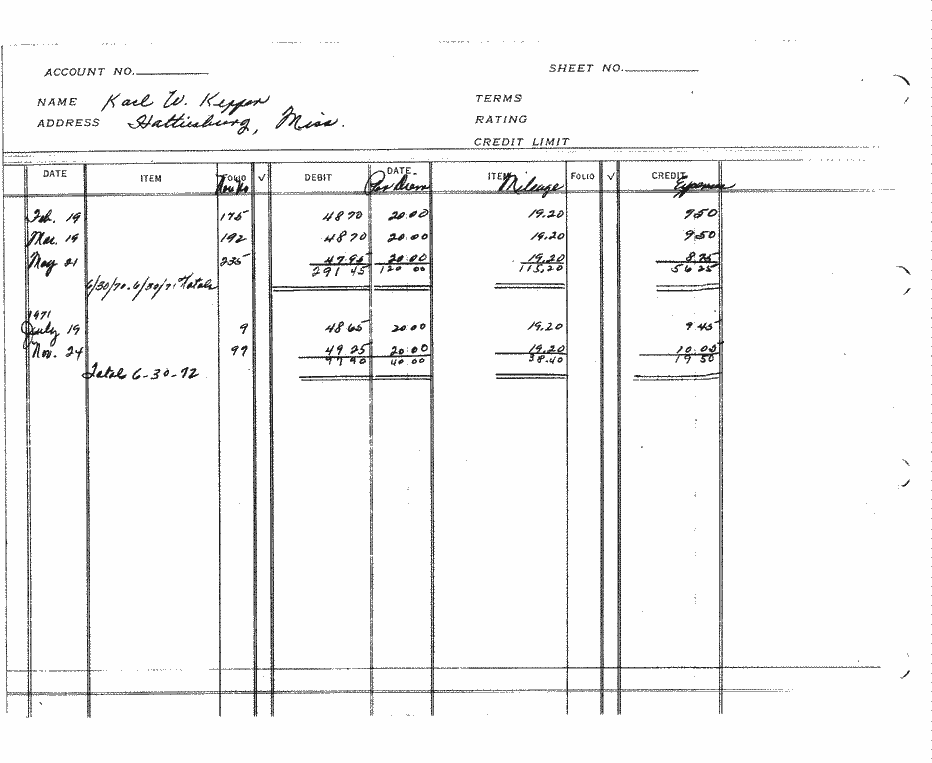 ACCOUNT NO. SHEET NO.
NAME Karl W. Kepper TERMS
ADDRESS Hattiesburg, Miss. RATING
CREDIT LIMIT
DATE ITEM FOLIO √ DEBIT DATE ITEM FOLIO √ CREDIT
Per Diem Mileage Expenses
Feb. 19 175 48 70 20.00 19.20 9.50
Mar. 19 192 48 70 20.00 19.20 9.50
May 21 235 47.95 20.00 19.20 8.75
291 45 120 00 115.20 56 25
6/30/70-6/30/71 Totals
1971
July 19 9 48 65 20.00 19.20 9 45
Nov. 24 97 49 25 20.00 19.20 10.05
97 90 40.00 38.40 19 50
Total 6-30-72